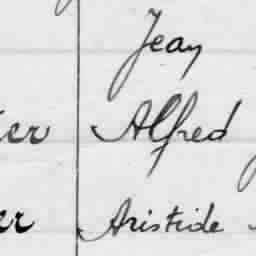 Jean
er Alfred
er Aristide